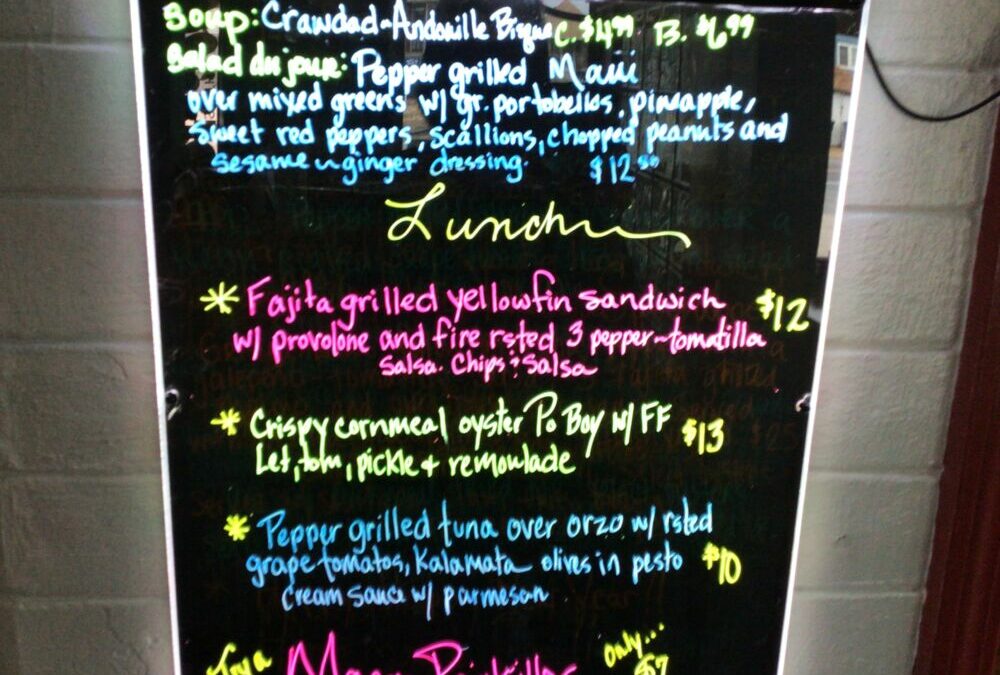 Soup: Crawdad-Andouille Bisque C. $4.99 B. $6.99
Salad du jour: Pepper grilled Maui
over mixed greens w/ gr. portobellos, pineapple,
Sweet red peppers, scallions, chopped peanuts and
sesame ~ ginger dressing. $12.00
Lunch
* Fajita grilled yellowfin sandwich $12
w/ provolone and fire rsted 3 pepper-tomatilla
Salsa. Chips & Salsa
* Crispy cornmeal oyster Po Boy w/ FF $13
Let, tom, pickle + remoulade
* Pepper grilled tuna over orzo w/ rsted
grape tomatos, Kalamata olives in pesto $10
cream sauce w/ parmesan
Try a only... $7